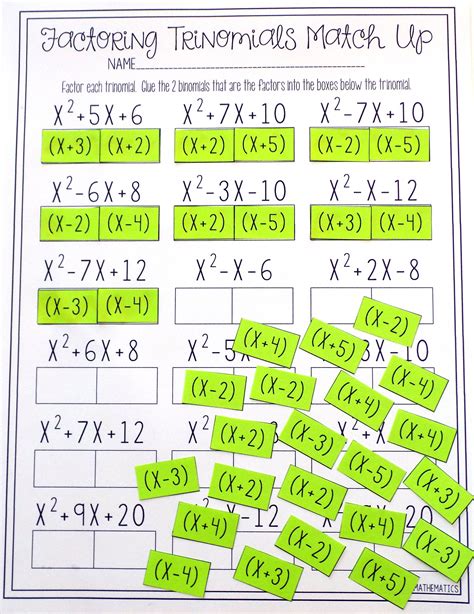 Factoring Trinomials Match Up
NAME
Factor each trinomial. Glue the 2 binomials that are the factors into the boxes below the trinomial.
X²+5X+6 X²+7X+10 X²-7X+10
(X+3) (X+2) (X+2) (X+5) (X-2) (X-5)
X²-6X+8 X²-3X-10 X²-X-12
(X-2) (X-4) (X+2) (X-5) (X+3) (X-4)
X²-7X+12 X²-X-6 X²+2X-8
(X-3) (X-4)
(X-2)
(X+4) (X+5)
X²+6X+8 X²-5X X-10
(X-2) (X-2) (X+4) (X-4)
X²+7X+12 (X+2) (X-3) (X+4)
(X-3) (X+2) (X+2) (X-5) (X+3)
X²+9X+20 (X+4) X-12 (X-2) (X+4) (X-3)
(X-4) (X+2) (X+5)
MATHEMATICS